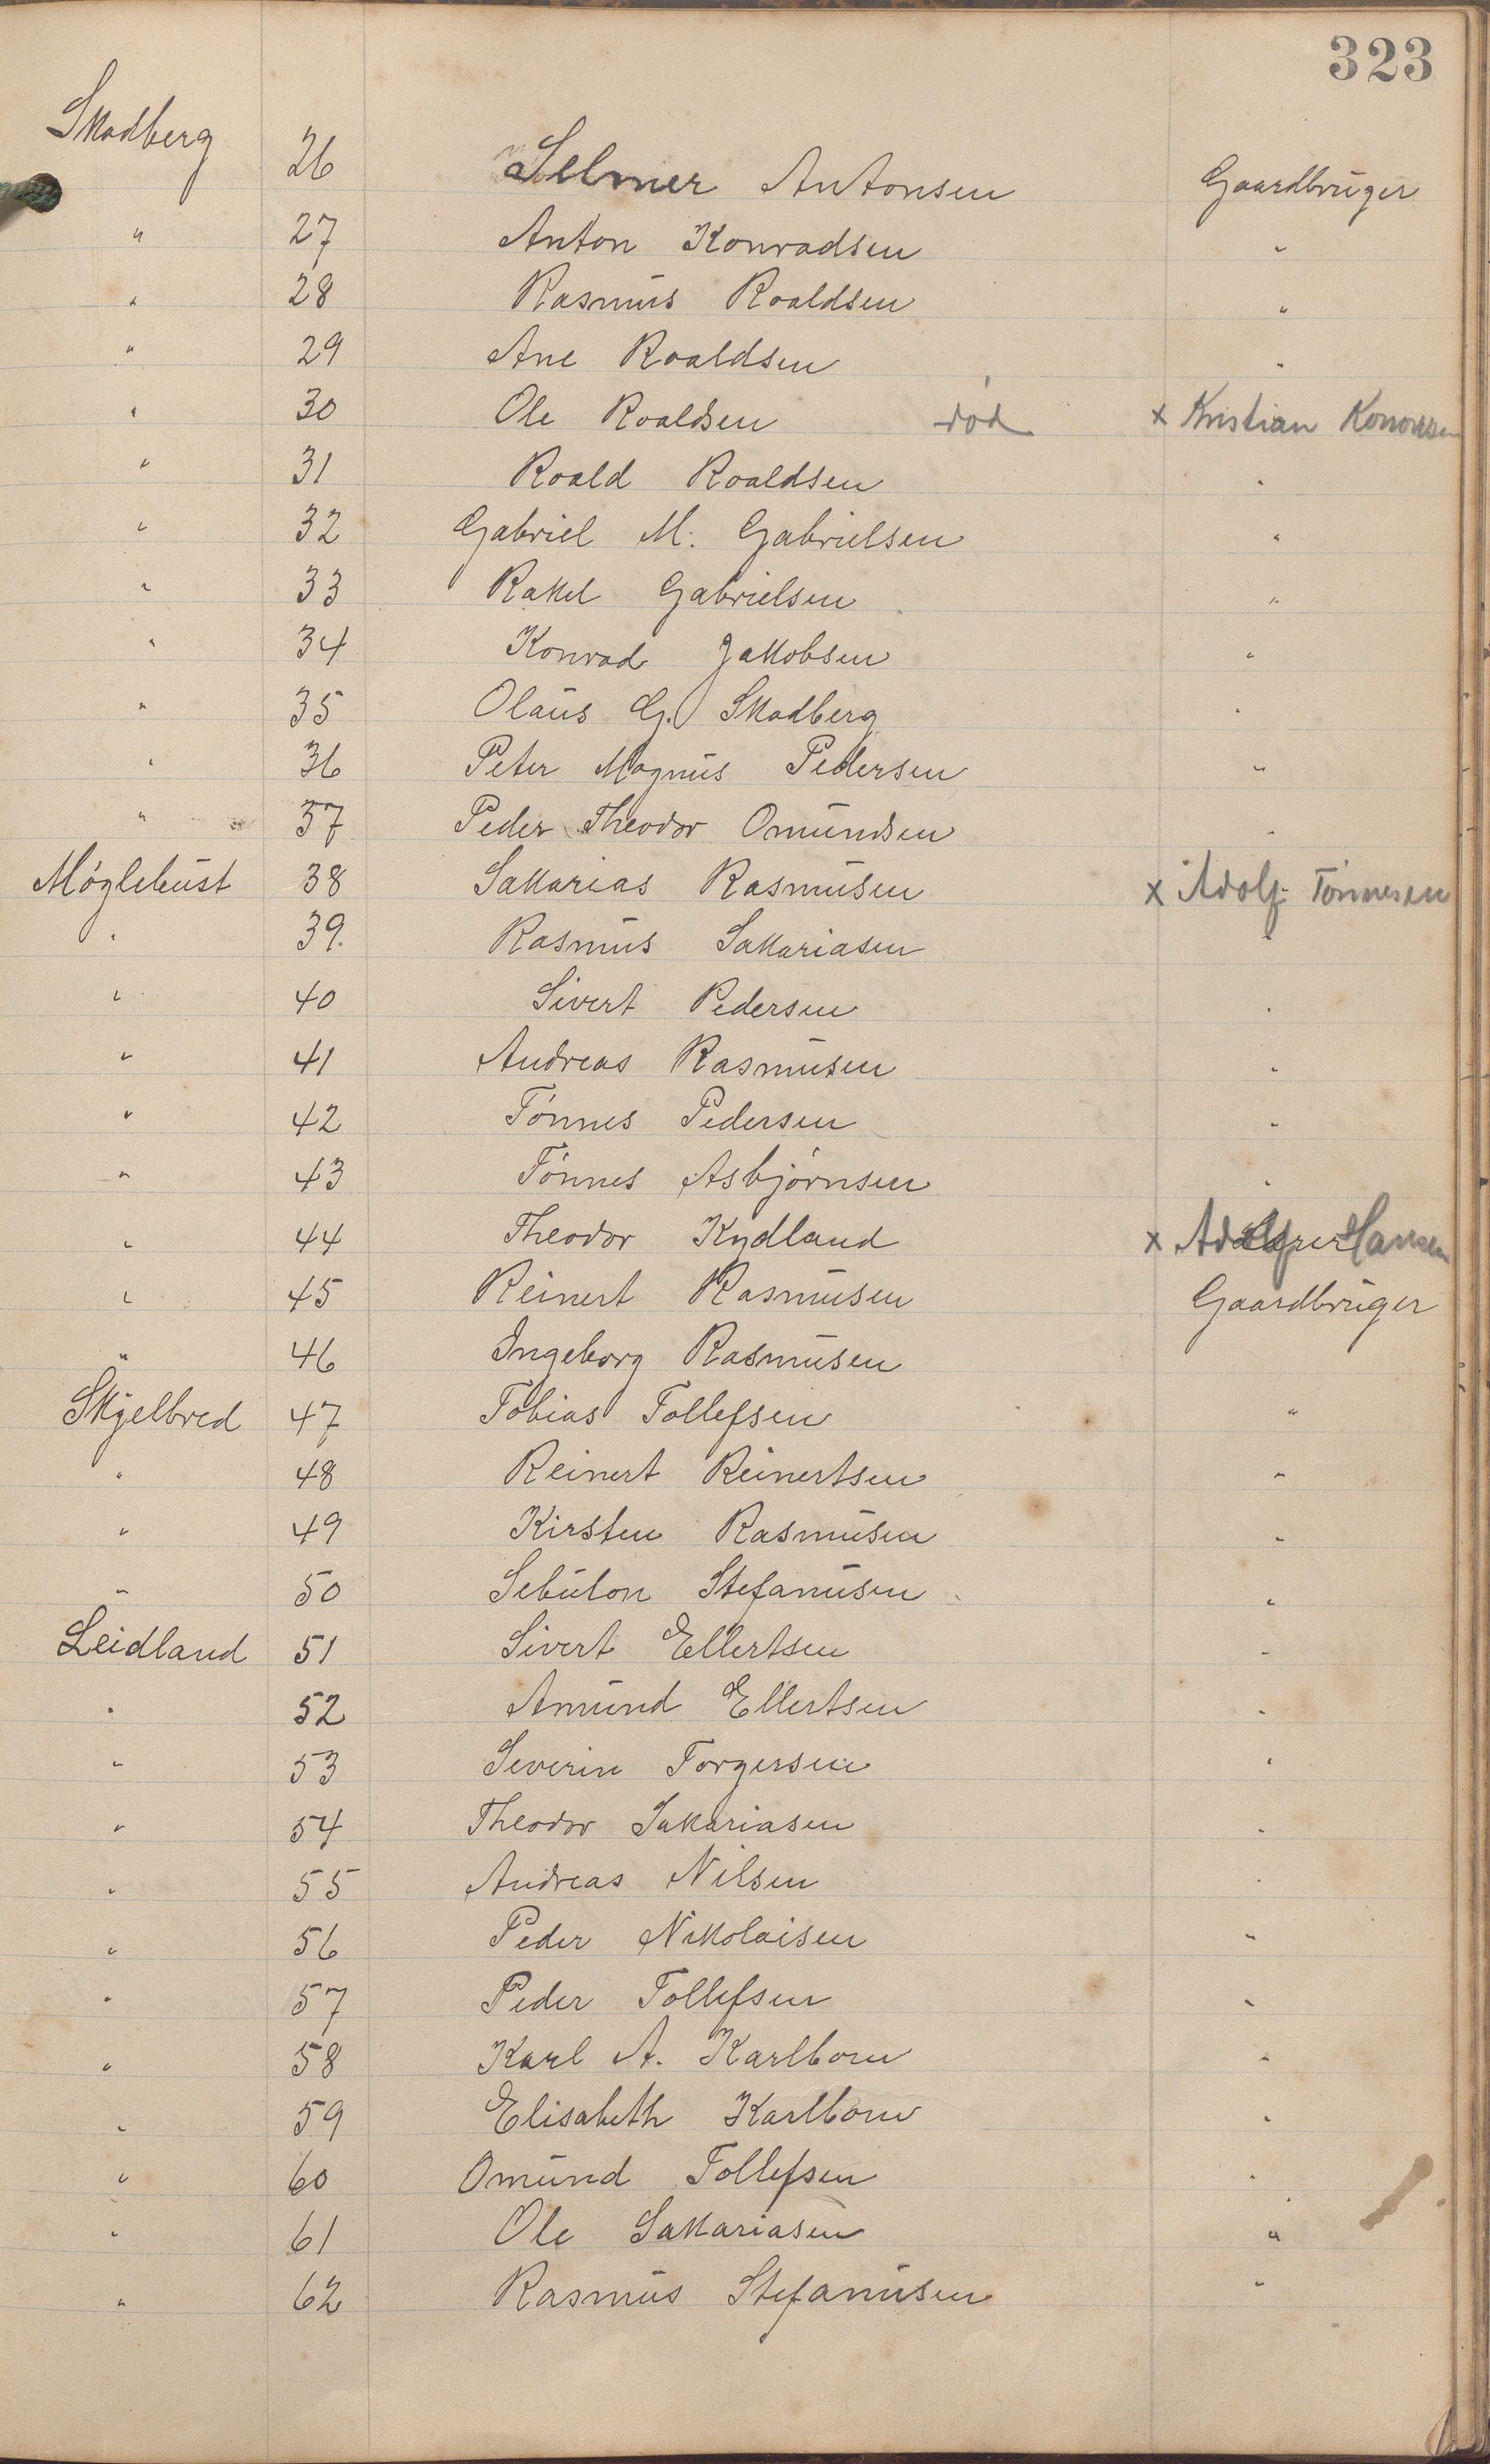 323
Skadberg 26 Selmer Antonsen Gaardbruger
" 27 Anton Konradsen "
" 28 Rasmus Roaldsen "
" 29 Ane Roaldsen "
" 30 Ole Roaldsen død x Kristian
" 31 Roald Roaldsen "
" 32 Gabriel M. Gabrielsen "
" 33 Rakel Gabrielsen "
" 34 Konrad Jakobsen "
" 35 Olaus G. Skadberg "
" 36 Peter Magnus Pedersen "
" 37 Peder Theodor Omundsen "
Møglebust 38 Sakarias Rasmusen x Adolf Tønnesen
" 39. Rasmus Sakariasen "
" 40 Sivert Pedersen "
" 41 Andreas Rasmusen "
" 42 Tønnes Pedersen "
" 43 Tønnes Asbjørnsen "
" 44 Theodor Kydland x Hansen
" 45 Reinert Rasmusen Gaardbruger
" 46 Ingeborg Rasmusen
Skjelbred 47 Tobias Tollefsen "
" 48 Reinert Reinertsen "
" 49 Kirsten Rasmusen "
" 50 Sebulon Stefanusen "
Leidland 51 Sivert Ellertsen "
" 52 Amund Ellertsen "
" 53 Severin Torgersen "
" 54 Theodor Sakariasen "
" 55 Andreas Nilsen "
" 56 Peder Nikolaisen "
" 57 Peder Tollefsen "
" 58 Karl A. Karlborn "
" 59 Elisabeth Karlborn "
" 60 Omund Tollefsen "
" 61 Ole Sakariasen "
" 62 Rasmus Stefanusen "